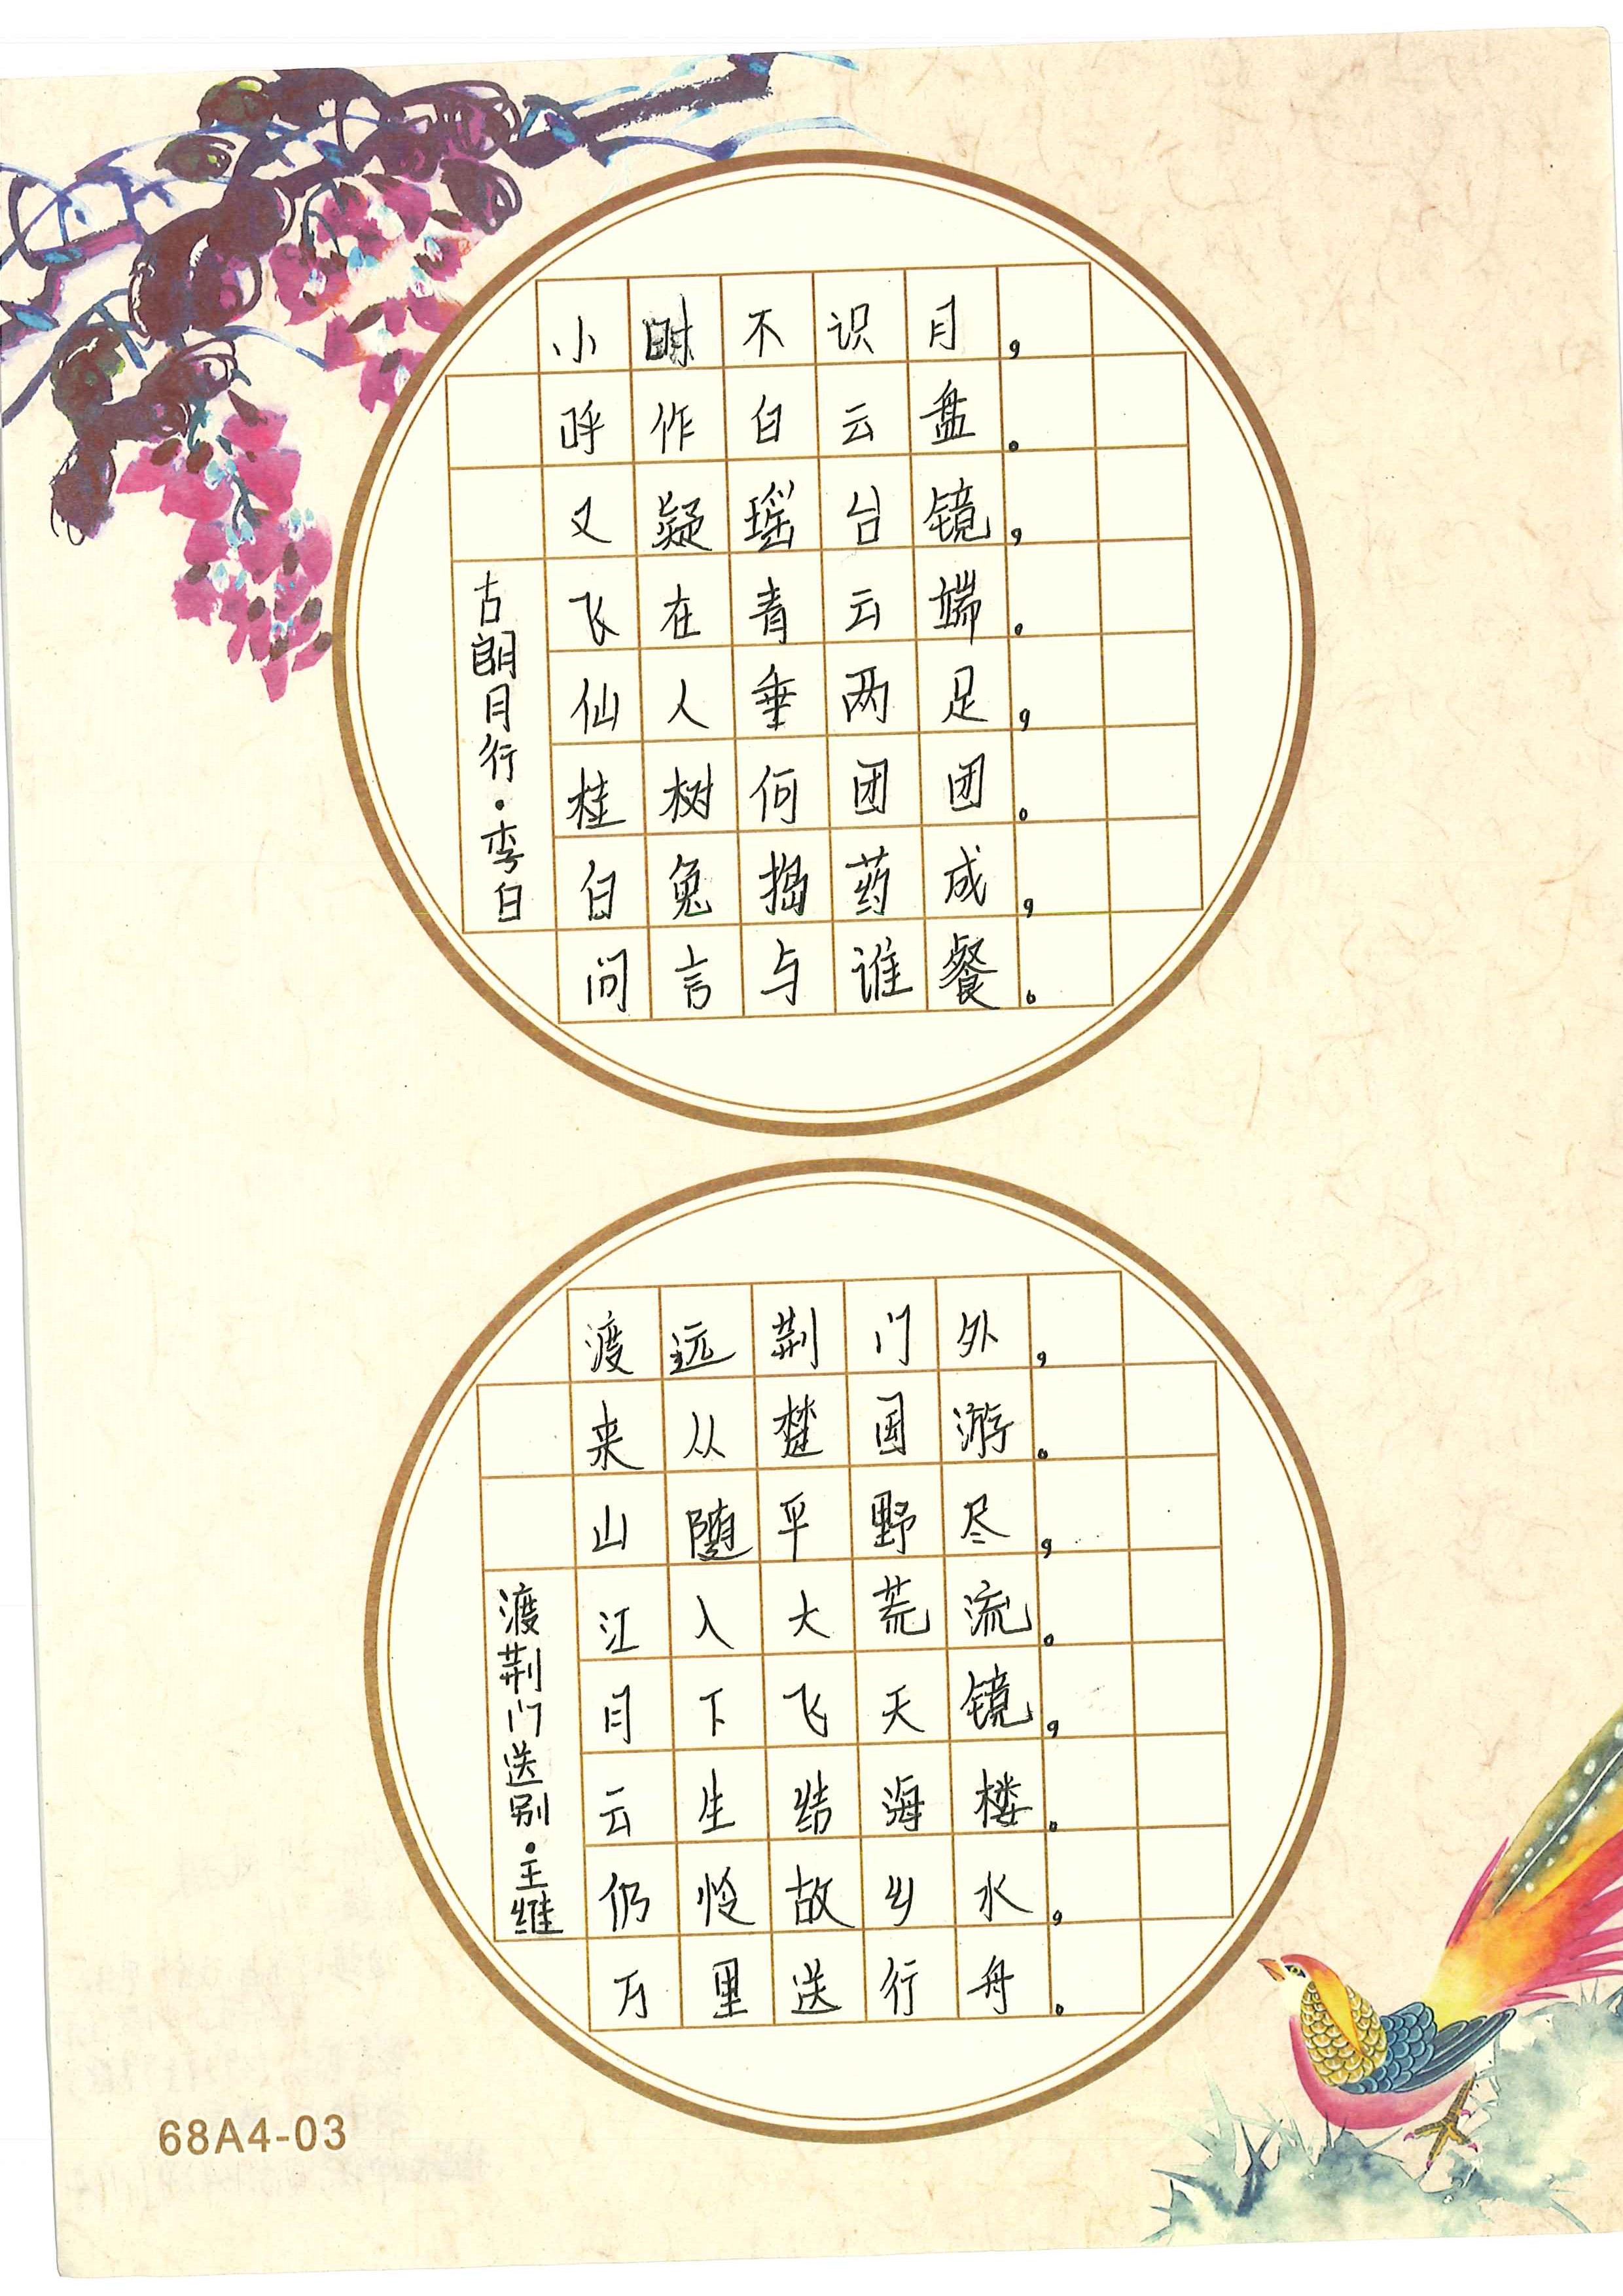 小时不识月，
呼作白云盘。
又疑瑶台镜，
飞在青云端。
仙人垂两足，
桂树何团团。
白兔捣药成，
问言与谁餐。
古朗月行·李白
渡远荆门外，
来从楚国游。
山随平野尽，
江入大荒流。
月下飞天镜，
云生结海楼。
仍怜故乡水，
万里送行舟。
渡荆门送别·王维
68A4-03